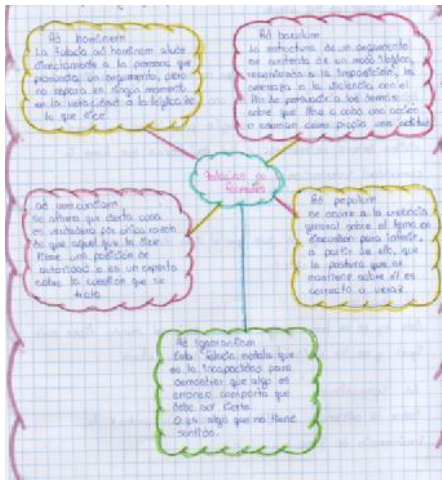 Ad hominem
La falacia ad hominem alude
directamente a la persona que
pronuncia un argumento, pero
no repara en ningún momento
en la veracidad a la lógica de
lo que dice
Ad baculum
La estructura de un argumento
se sustenta de un modo ilógico,
a la imposición, la
amenaza a la violencia con el
fin de persuadir a los demás
sobre que lleve a cabo una acción
o asuman como propia una actitud.
Falacias no
formales
ad verecundiam
Se afirma que cierta cosa
es verdadera por única razón
de que aquel que la dice
tiene una posición de
autoridad o es un experto
sobre la cuestión que se
trata
Ad populum
Se recurre a la creencia
general sobre el tema en
discusión para inferir, a
partir de ello, que
la postura que se
mantiene sobre él es
correcta o veraz
Ad Ignorantiam
Esta falacia señala que
es la incapacidad para
demostrar que algo es
erróneo comporta que
debe ser cierto.
O es algo que no tiene
sentido.